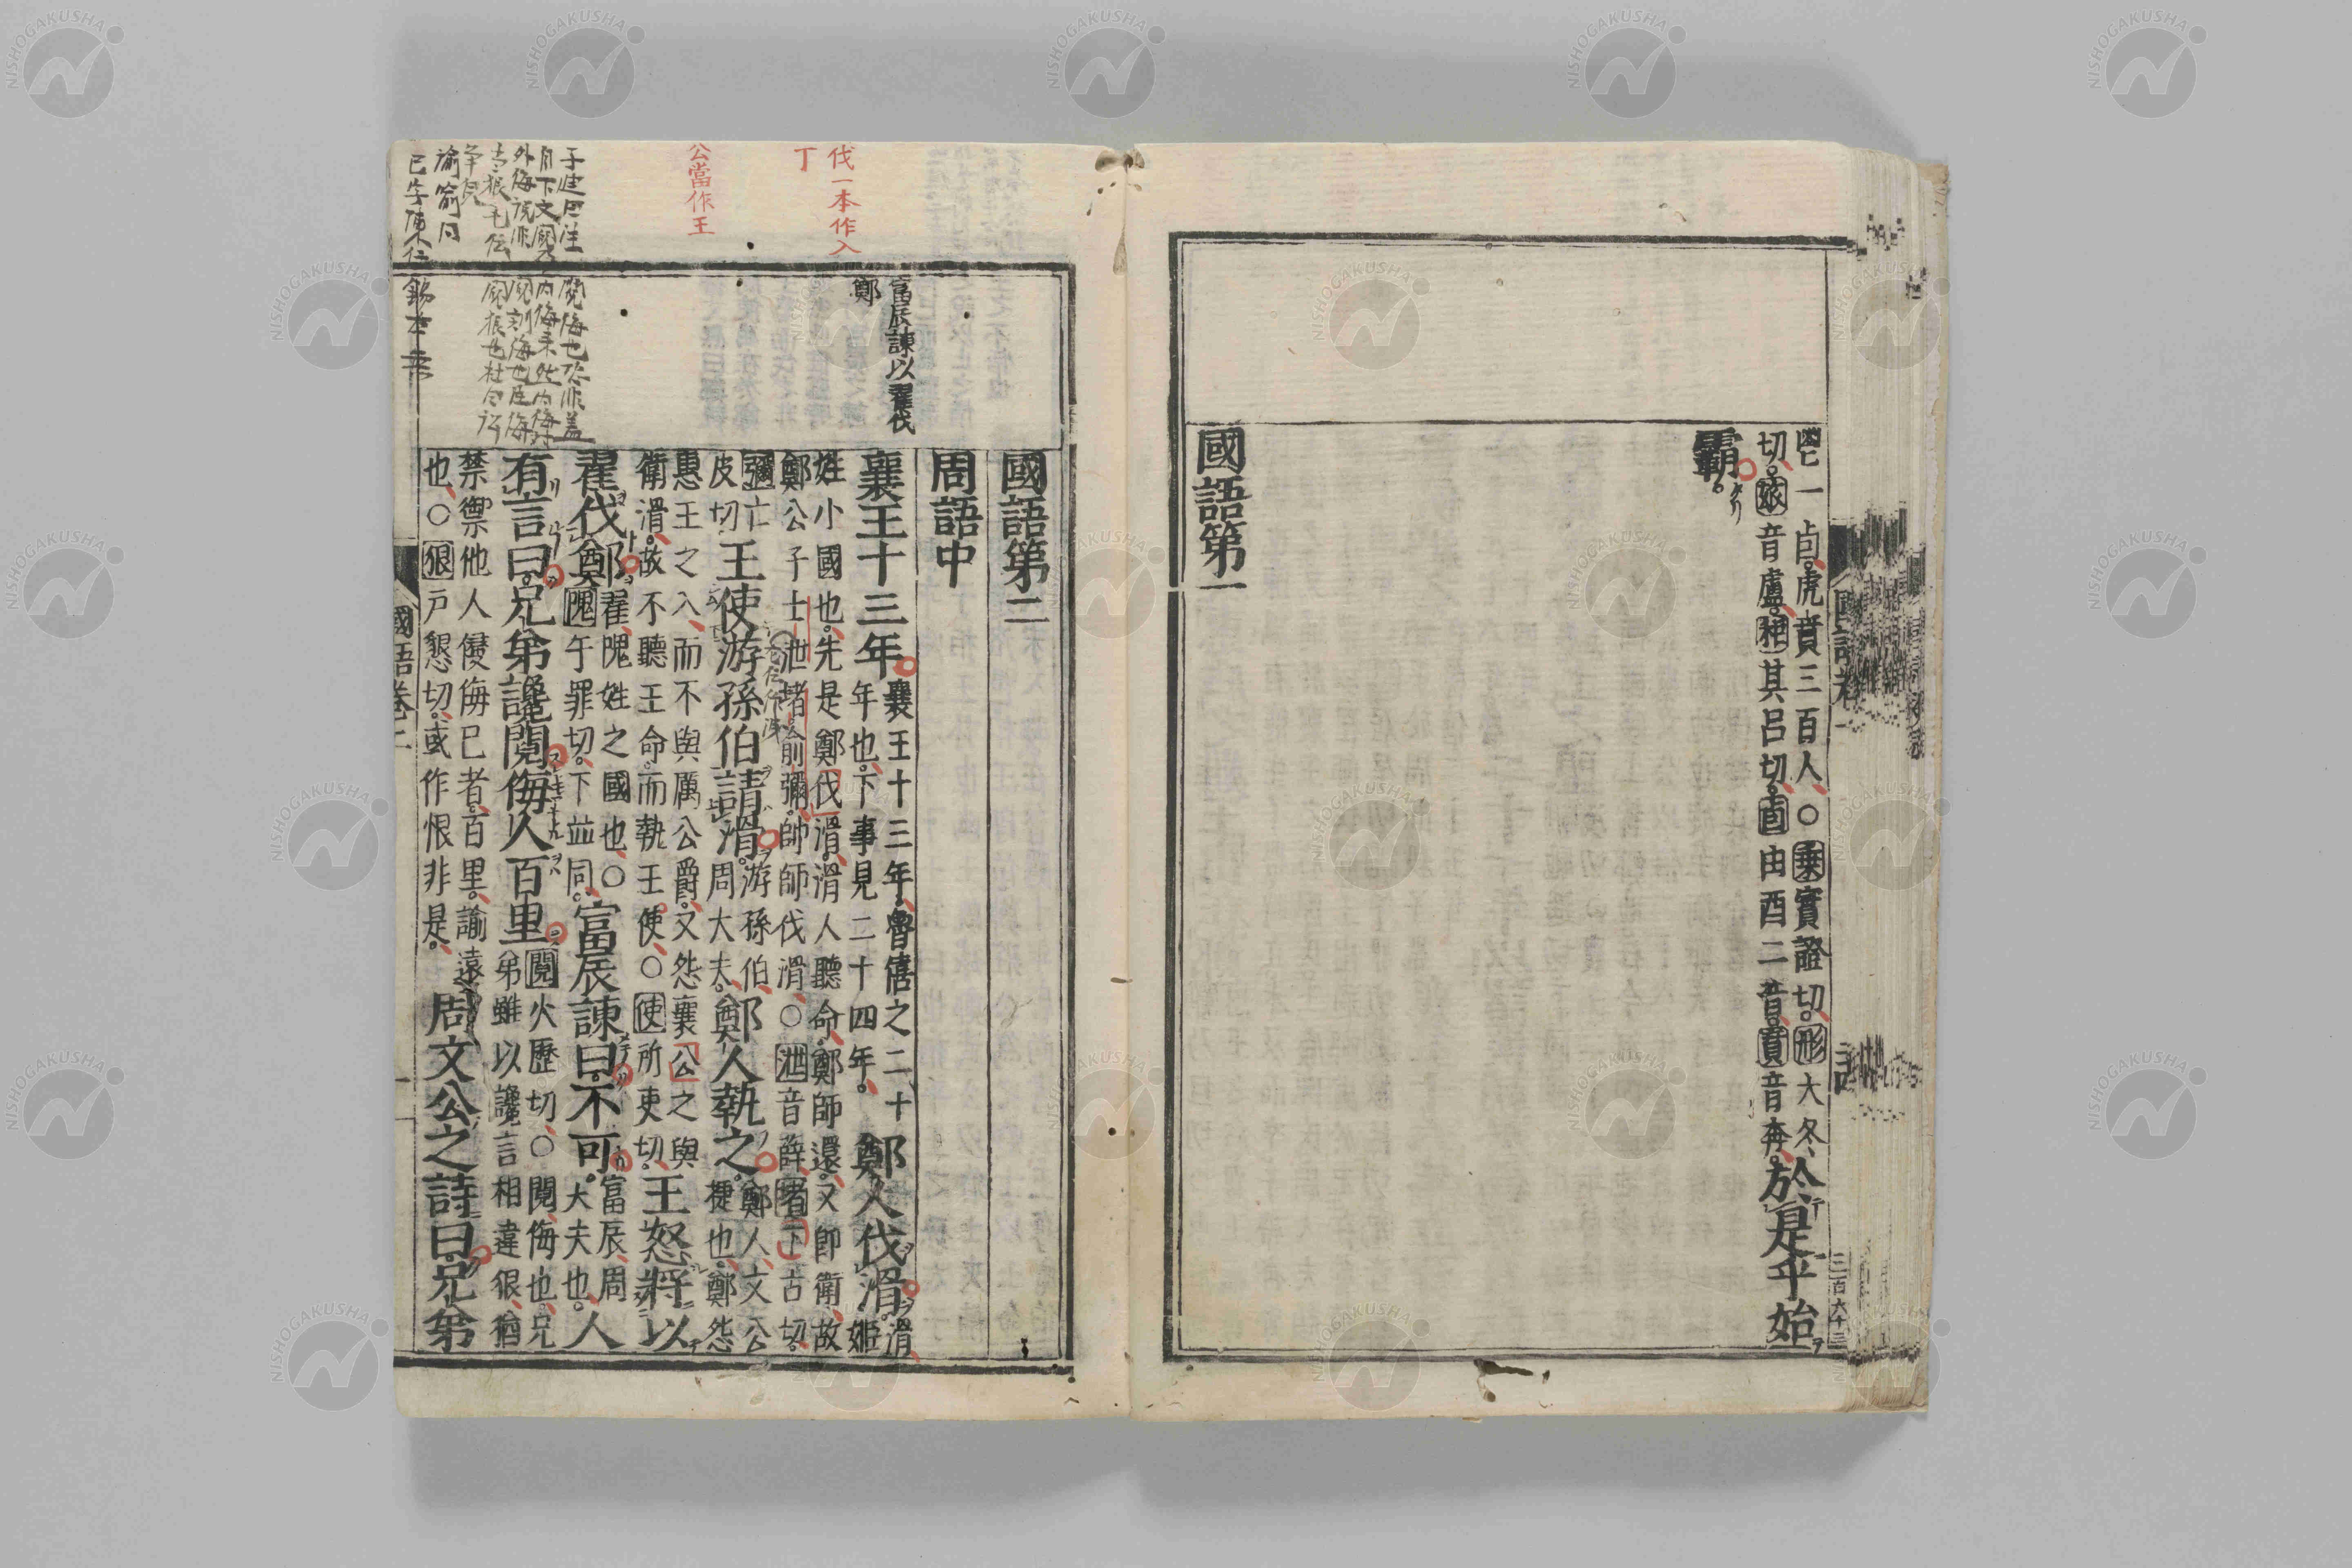 鬯一卣虎賁三百人○乘實證切彤大冬
切玈音盧秬其呂切卣由酉二音賁音奔
於是乎始
霸
國語第一
國語卷一
三百六十三
國語第二
周語中
富辰諫以翟伐
鄭
伐一本作入
丁
公當作王
襄王十三年
襄王十三年魯僖之二十
年也下事見二十四年
鄭人伐滑
滑
姬
姓小國也先是鄭伐滑滑人聽命鄭師還又即衛故
鄭公子士泄堵俞彌帥師伐滑○泄音薛堵丁古切
彌亡
皮切
王使游孫伯請滑
游孫伯
周大夫
鄭人執之
鄭人文公
捷也鄭怨
惠王之入而不與厲公爵又怨襄公之與
衛滑故不聽王命而執王使○使所吏切
王怒將以
翟伐鄭
翟隗姓之國也○
隗午罪切下並同
富辰諫曰不可
富辰周
大夫也
人
有言曰兄弟讒鬩侮人百里
鬩火歷切○鬩侮也兄
弟雖以讒言相違狠猶
禁禦他人侵侮己者百里諭遠
也○狠戶懇切或作恨非是
周文公之詩曰兄弟
國語卷二
NISHOGAKUSHA